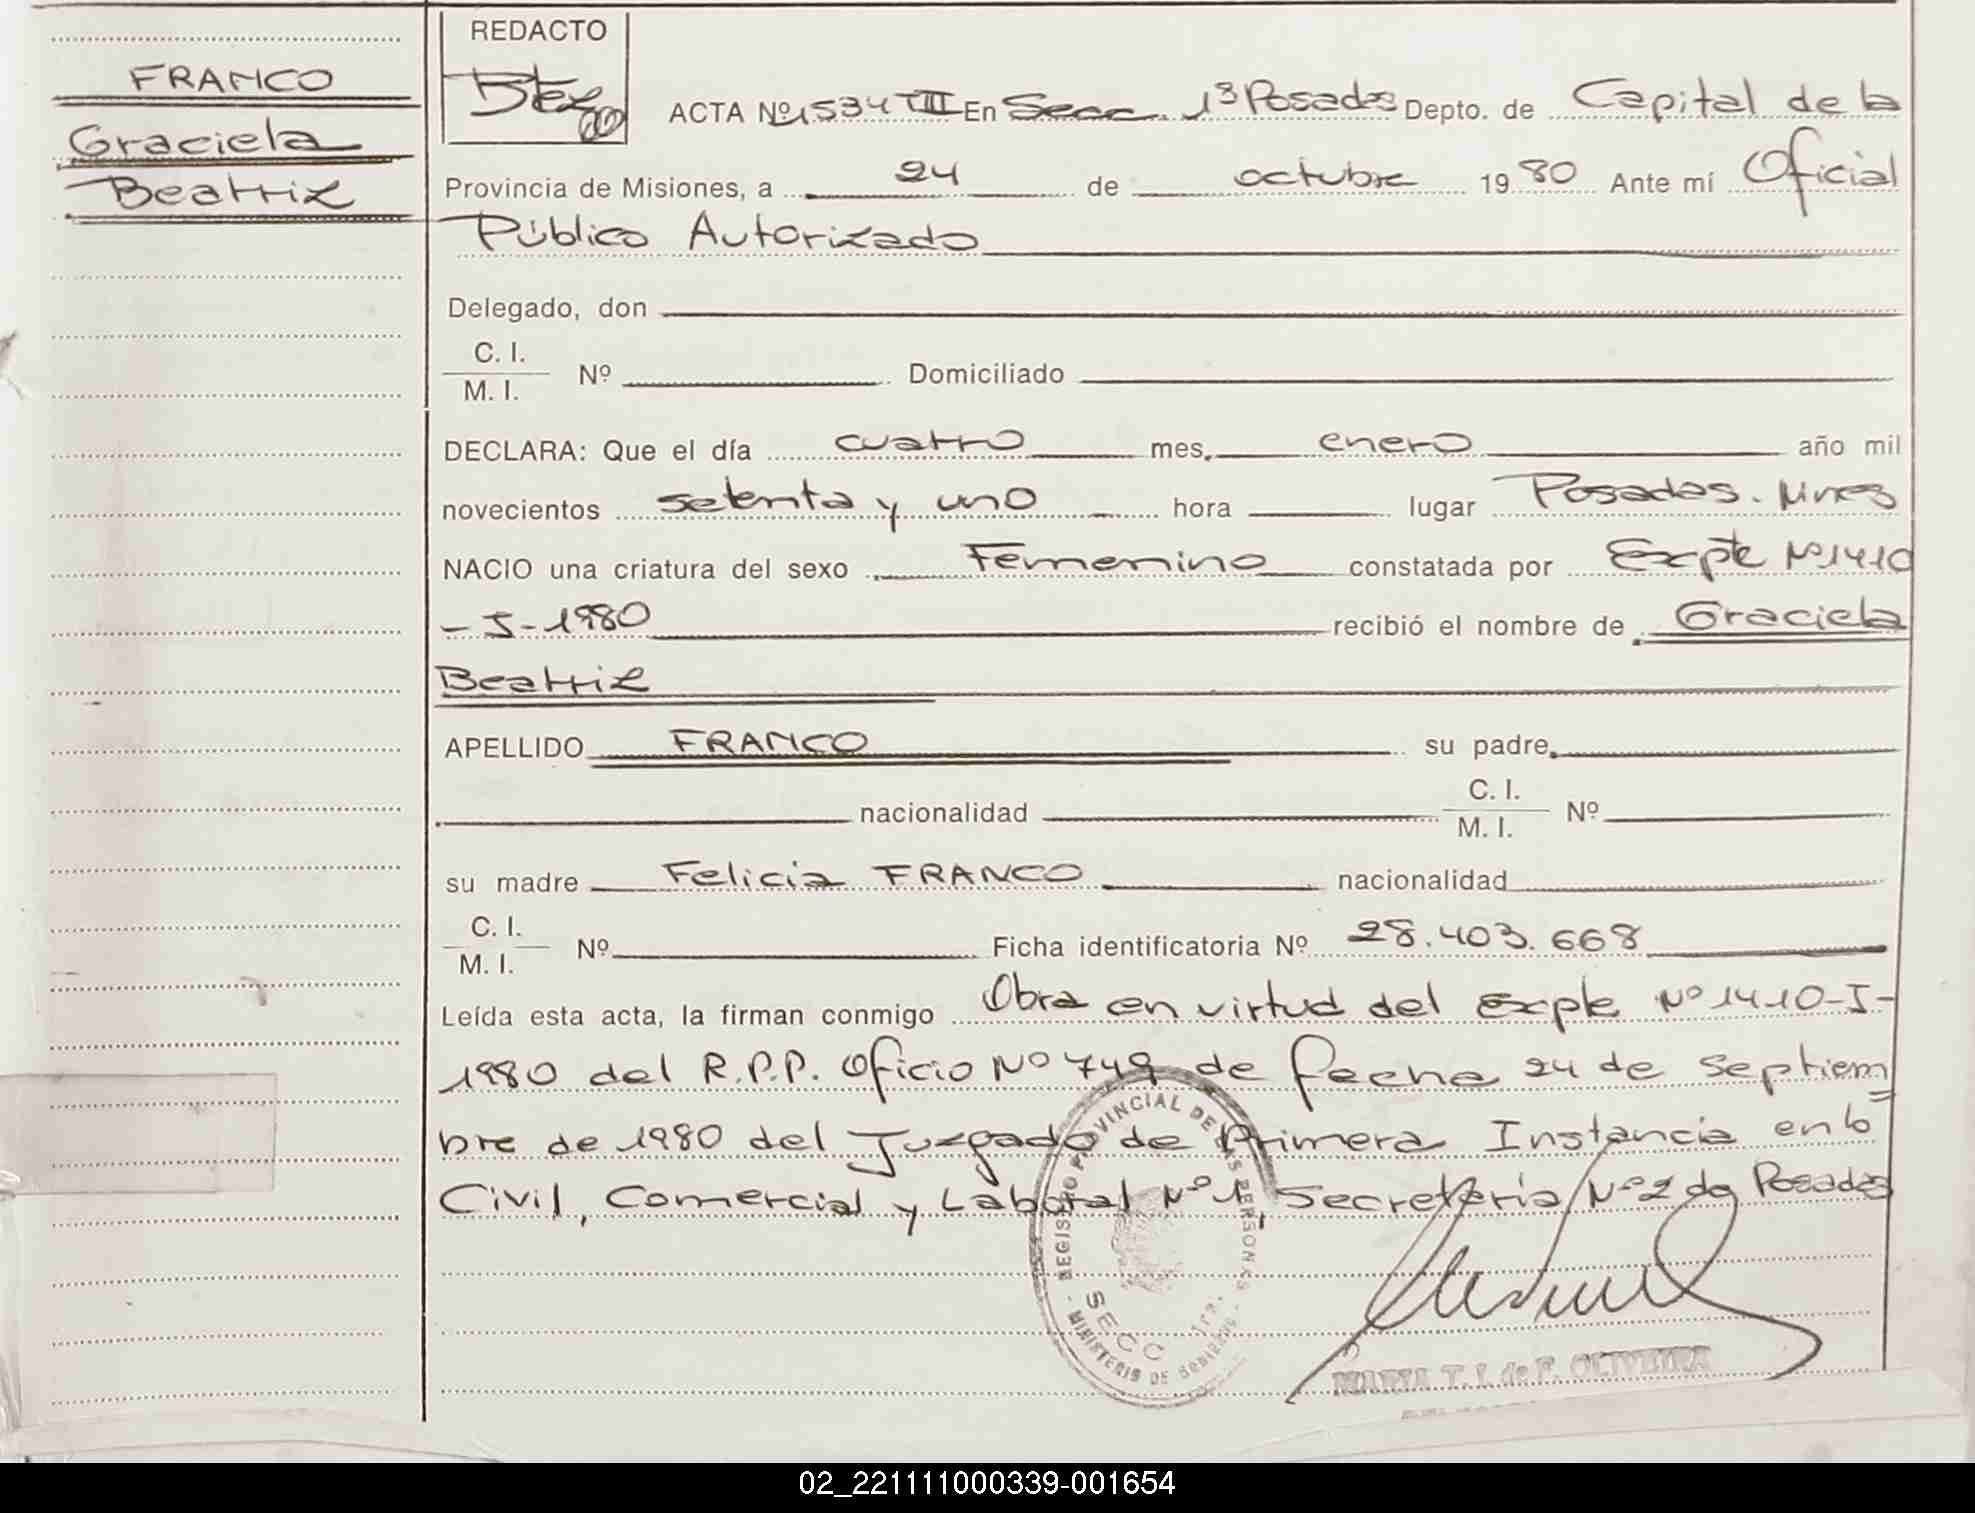 FRANCO
Graciela
Beatriz
REDACTO
ACTA Nº 1534 TIII En Secc. 1ª Posadas Depto. de Capital de la
Provincia de Misiones, a 24 de octubre 1980 Ante mí Oficial
Público Autorizado
Delegado, don
C. I.
M. I. Nº Domiciliado
DECLARA: Que el día cuatro mes enero año mil
novecientos setenta y uno hora lugar Posadas. Mnes
NACIO una criatura del sexo Femenino constatada por Expte Nº 1410
-I-1980 recibió el nombre de Graciela
Beatriz
APELLIDO FRANCO su padre
nacionalidad C. I. M. I. Nº
su madre Felicia FRANCO nacionalidad
C. I.
M. I. Nº Ficha identificatoria Nº 28.403.668
Leída esta acta, la firman conmigo Obra en virtud del Expte Nº 1410-I-
1980 del R.P.P. Oficio Nº 749 de fecha 24 de septiem=
bre de 1980 del Juzgado de Primera Instancia en lo
Civil, Comercial y Laboral Nº 1, Secretaria Nº 2 de Posadas
REGISTRO PROVINCIAL DE LAS PERSONAS
SECC 1ra.
- MINISTERIO DE GOBIERNO -
MARIA T. I. de F. OLIVEIRA
02_221111000339-001654